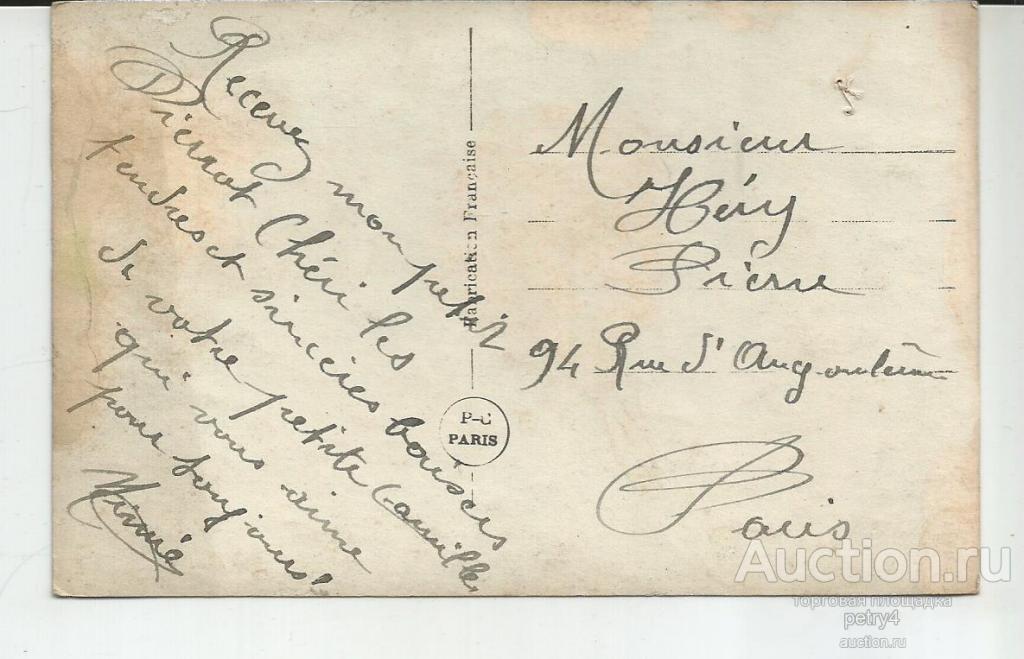 Recevez mon petit
Pierrot Chéri les
tendres et sincères baisers
de votre petite Camille
qui vous aime
pour toujours
Fabrication Française
P-C
PARIS
Monsieur
Héry
Pierre
94 Rue d'Angoulème
Paris
Auction.ru
торговая площадка
petry4
auction.ru